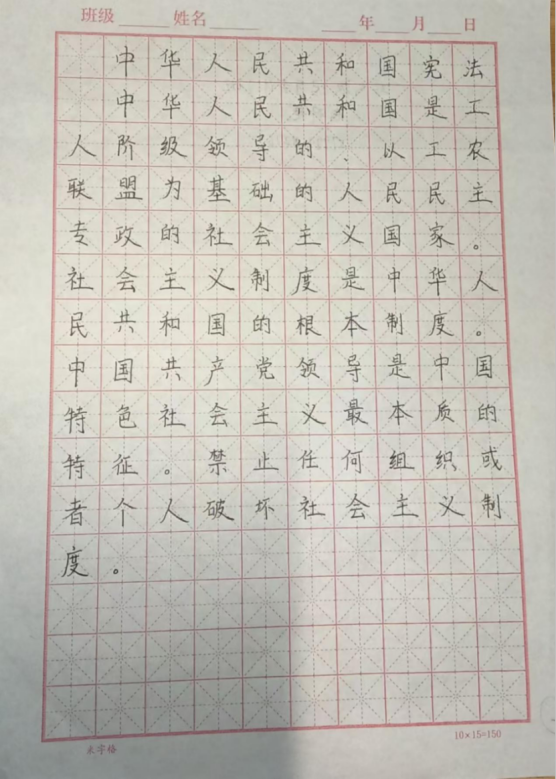 班级______姓名______ ____年____月____日
中华人民共和国宪法
中华人民共和国是工
人阶级领导的、以工农
联盟为基础的人民民主
专政的社会主义国家。
社会主义制度是中华人
民共和国的根本制度。
中国共产党领导是中国
特色社会主义最本质的
特征。禁止任何组织或
者个人破坏社会主义制
度。
米字格 10×15=150